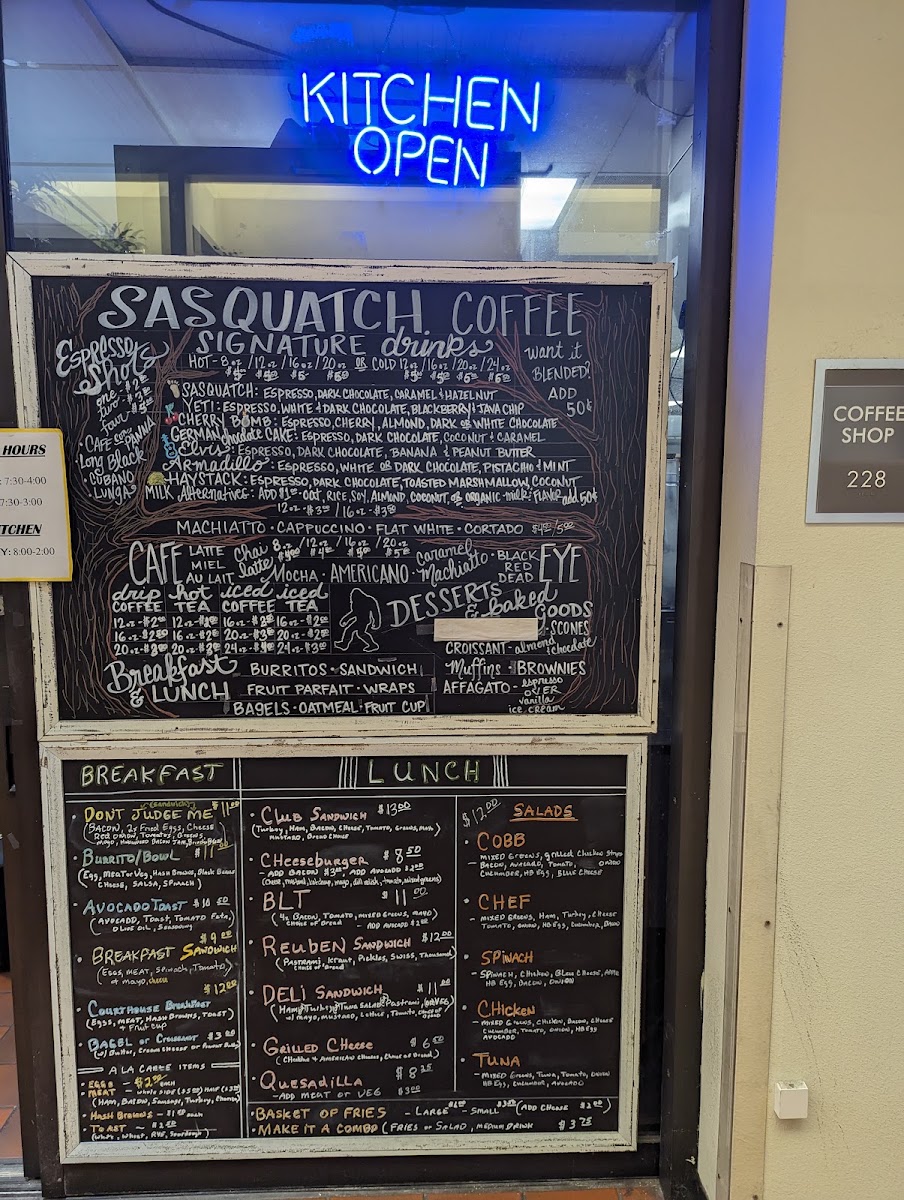 KITCHEN
OPEN
SASQUATCH COFFEE
SIGNATURE drinks
HOT-8oz/12oz/16oz/20oz OR COLD 12oz/16oz/20oz/24oz
want it
BLENDED?
ADD
50¢
ESPRESSO
Shots
one
two
four
• CAFE CON PANNA
• Long Black
• CUBANO
• LUNGAS
SASQUATCH: ESPRESSO, DARK CHOCOLATE, CARAMEL & HAZELNUT
YETI: ESPRESSO, WHITE & DARK CHOCOLATE, BLACKBERRY & JAVA CHIP
CHERRY BOMB: ESPRESSO, CHERRY, ALMOND, DARK OR WHITE CHOCOLATE
GERMAN chocolate CAKE: ESPRESSO, DARK CHOCOLATE, COCONUT & CARAMEL
Elvis: ESPRESSO, DARK CHOCOLATE, BANANA & PEANUT BUTTER
Armadillo: ESPRESSO, WHITE OR DARK CHOCOLATE, PISTACHIO & MINT
HAYSTACK: ESPRESSO, DARK CHOCOLATE, TOASTED MARSHMALLOW, COCONUT
MILK Alternatives: ADD $1.00 OAT, RICE, SOY, ALMOND, COCONUT, OR ORGANIC MILK; FLAVOR add 50¢
MACHIATTO • CAPPUCCINO • FLAT WHITE • CORTADO
CAFE
LATTE
MIEL
AU LAIT
Chai
latte
8oz/12oz/16oz/20oz
MOCHA • AMERICANO •
Caramel
Machiatto
• BLACK
RED
DEAD
EYE
drip COFFEE
hot TEA
iced COFFEE
iced TEA
12oz
12oz
16oz
16oz
16oz
16oz
20oz
20oz
20oz
20oz
24oz
24oz
DESSERTS
& baked
GOODS
• SCONES
CROISSANT - almond & chocolate
Muffins • BROWNIES
AFFAGATO - espresso
OVER
vanilla
ice cream
Breakfast
& LUNCH
BURRITOS • SANDWICH
FRUIT PARFAIT • WRAPS
BAGELS • OATMEAL • FRUIT CUP
HOURS
: 7:30-4:00
7:30-3:00
TCHEN
Y: 8:00-2:00
COFFEE
SHOP
228
BREAKFAST
• DONT JUDGE ME (sandwich) $11.00
(BACON, 2x Fried Eggs, Cheese
Red onion, Tomatoes, Greens
• BURRITO/BOWL
(Egg, MEAT or Veg, Hash Browns, Black Beans
CHEESE, SALSA, SPINACH)
• AVOCADO TOAST
(AVOCADO, TOAST, TOMATO Feta,
OLIVE OIL, Seasoning
• BREAKFAST SANDWICH
(EGGS, MEAT, SPINACH, TOMATO,
+ mayo, cheese
$12.00
• COURTHOUSE BREAKFAST
(EGGS, MEAT, HASH BROWNS, TOAST)
+ FRUIT CUP
• BAGEL or CROISSANT $3.00
(w/ Butter, CREAM CHEESE or Peanut Butter
A LA CARTE ITEMS
• EGGS - $2.00 EACH
• MEAT
(HAM, BACON, SAUSAGE, TURKEY,
• HASH BROWNS
• TOAST
(White, Wheat, RYE, Sourdough)
LUNCH
• CLUB SANDWICH $13.00
(Turkey, HAM, BACON, CHEESE, TOMATO, Greens, Mayo
MUSTARD, BREAD CHOICE
• CHEESEBURGER $8.50
- ADD BACON $3.00 ADD AVOCADO $2.00
• BLT $11.00
(4x BACON, TOMATO, MIXED GREENS, MAYO)
choice of Bread
- ADD AVOCADO $2.00
• REUBEN SANDWICH $12.00
(PASTRAMI, KRAUT, Pickles, SWISS, Thousand)
choice of Bread
• DELI SANDWICH $11.00
(HAM, Turkey, Tuna SALAD, Pastrami, or VEG
w/ mayo, MUSTARD, Lettuce, Tomato, choice of Bread
• GRILLED CHEESE $6.50
(Cheddar & AMERICAN CHEESE, Choice of Bread)
• QUESADILLA $8.25
- ADD MEAT or VEG $3.00
$12.00 SALADS
• COBB
- MIXED GREENS, grilled Chicken strips
BACON, AVOCADO, TOMATO, ONION
CUCUMBER, HB EGG, BLUE CHEESE
• CHEF
- MIXED GREENS, HAM, Turkey, CHEESE
TOMATO, ONION, HB EGG, Cucumber, BACON
• SPINACH
- SPINACH, Chicken, BLEU CHEESE, APPLE
HB EGG, BACON, ONION
• CHICKEN
- MIXED GREENS, CHICKEN, BACON, CHEESE
CUCUMBER, TOMATO, ONION, HB EGG
AVOCADO
• TUNA
- MIXED GREENS, TUNA, TOMATO, ONION
HB EGG, CUCUMBER, AVOCADO
• BASKET OF FRIES - LARGE - SMALL (ADD CHEESE $2.00)
• MAKE IT A COMBO (FRIES or SALAD, MEDIUM DRINK $3.75